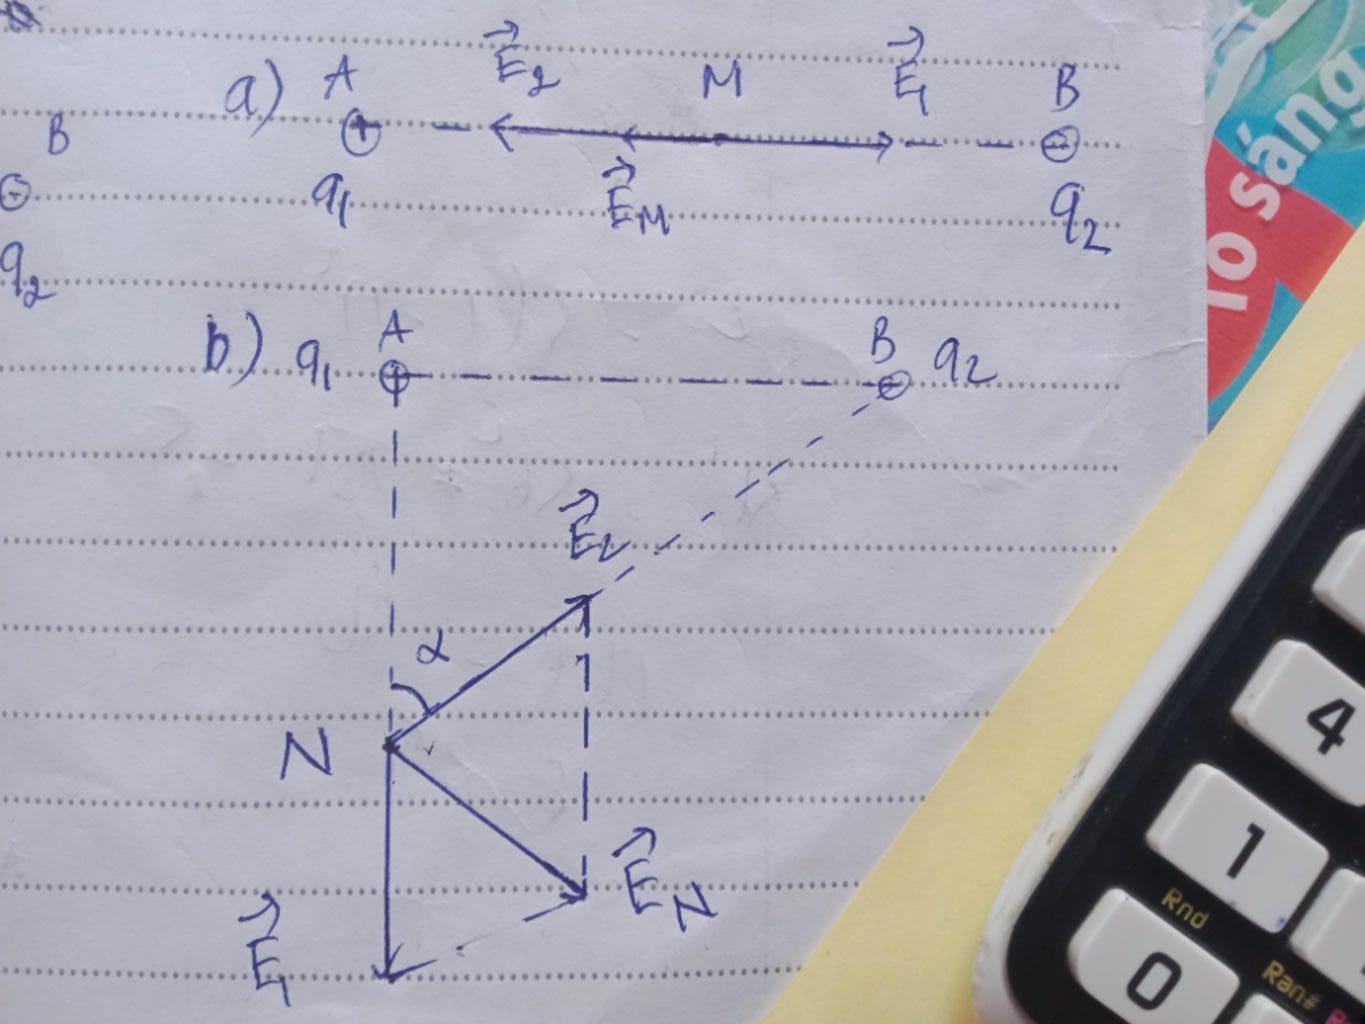 a) A E⃗₂ M E⃗₁ B
⊕ ⊖
q₁ E⃗M q₂
B
q₂
b) q₁ A B q₂
⊕ ⊖
E⃗₂
α
N
E⃗N
E⃗₁
lo sáng
4
1
Rnd
0
Ran#